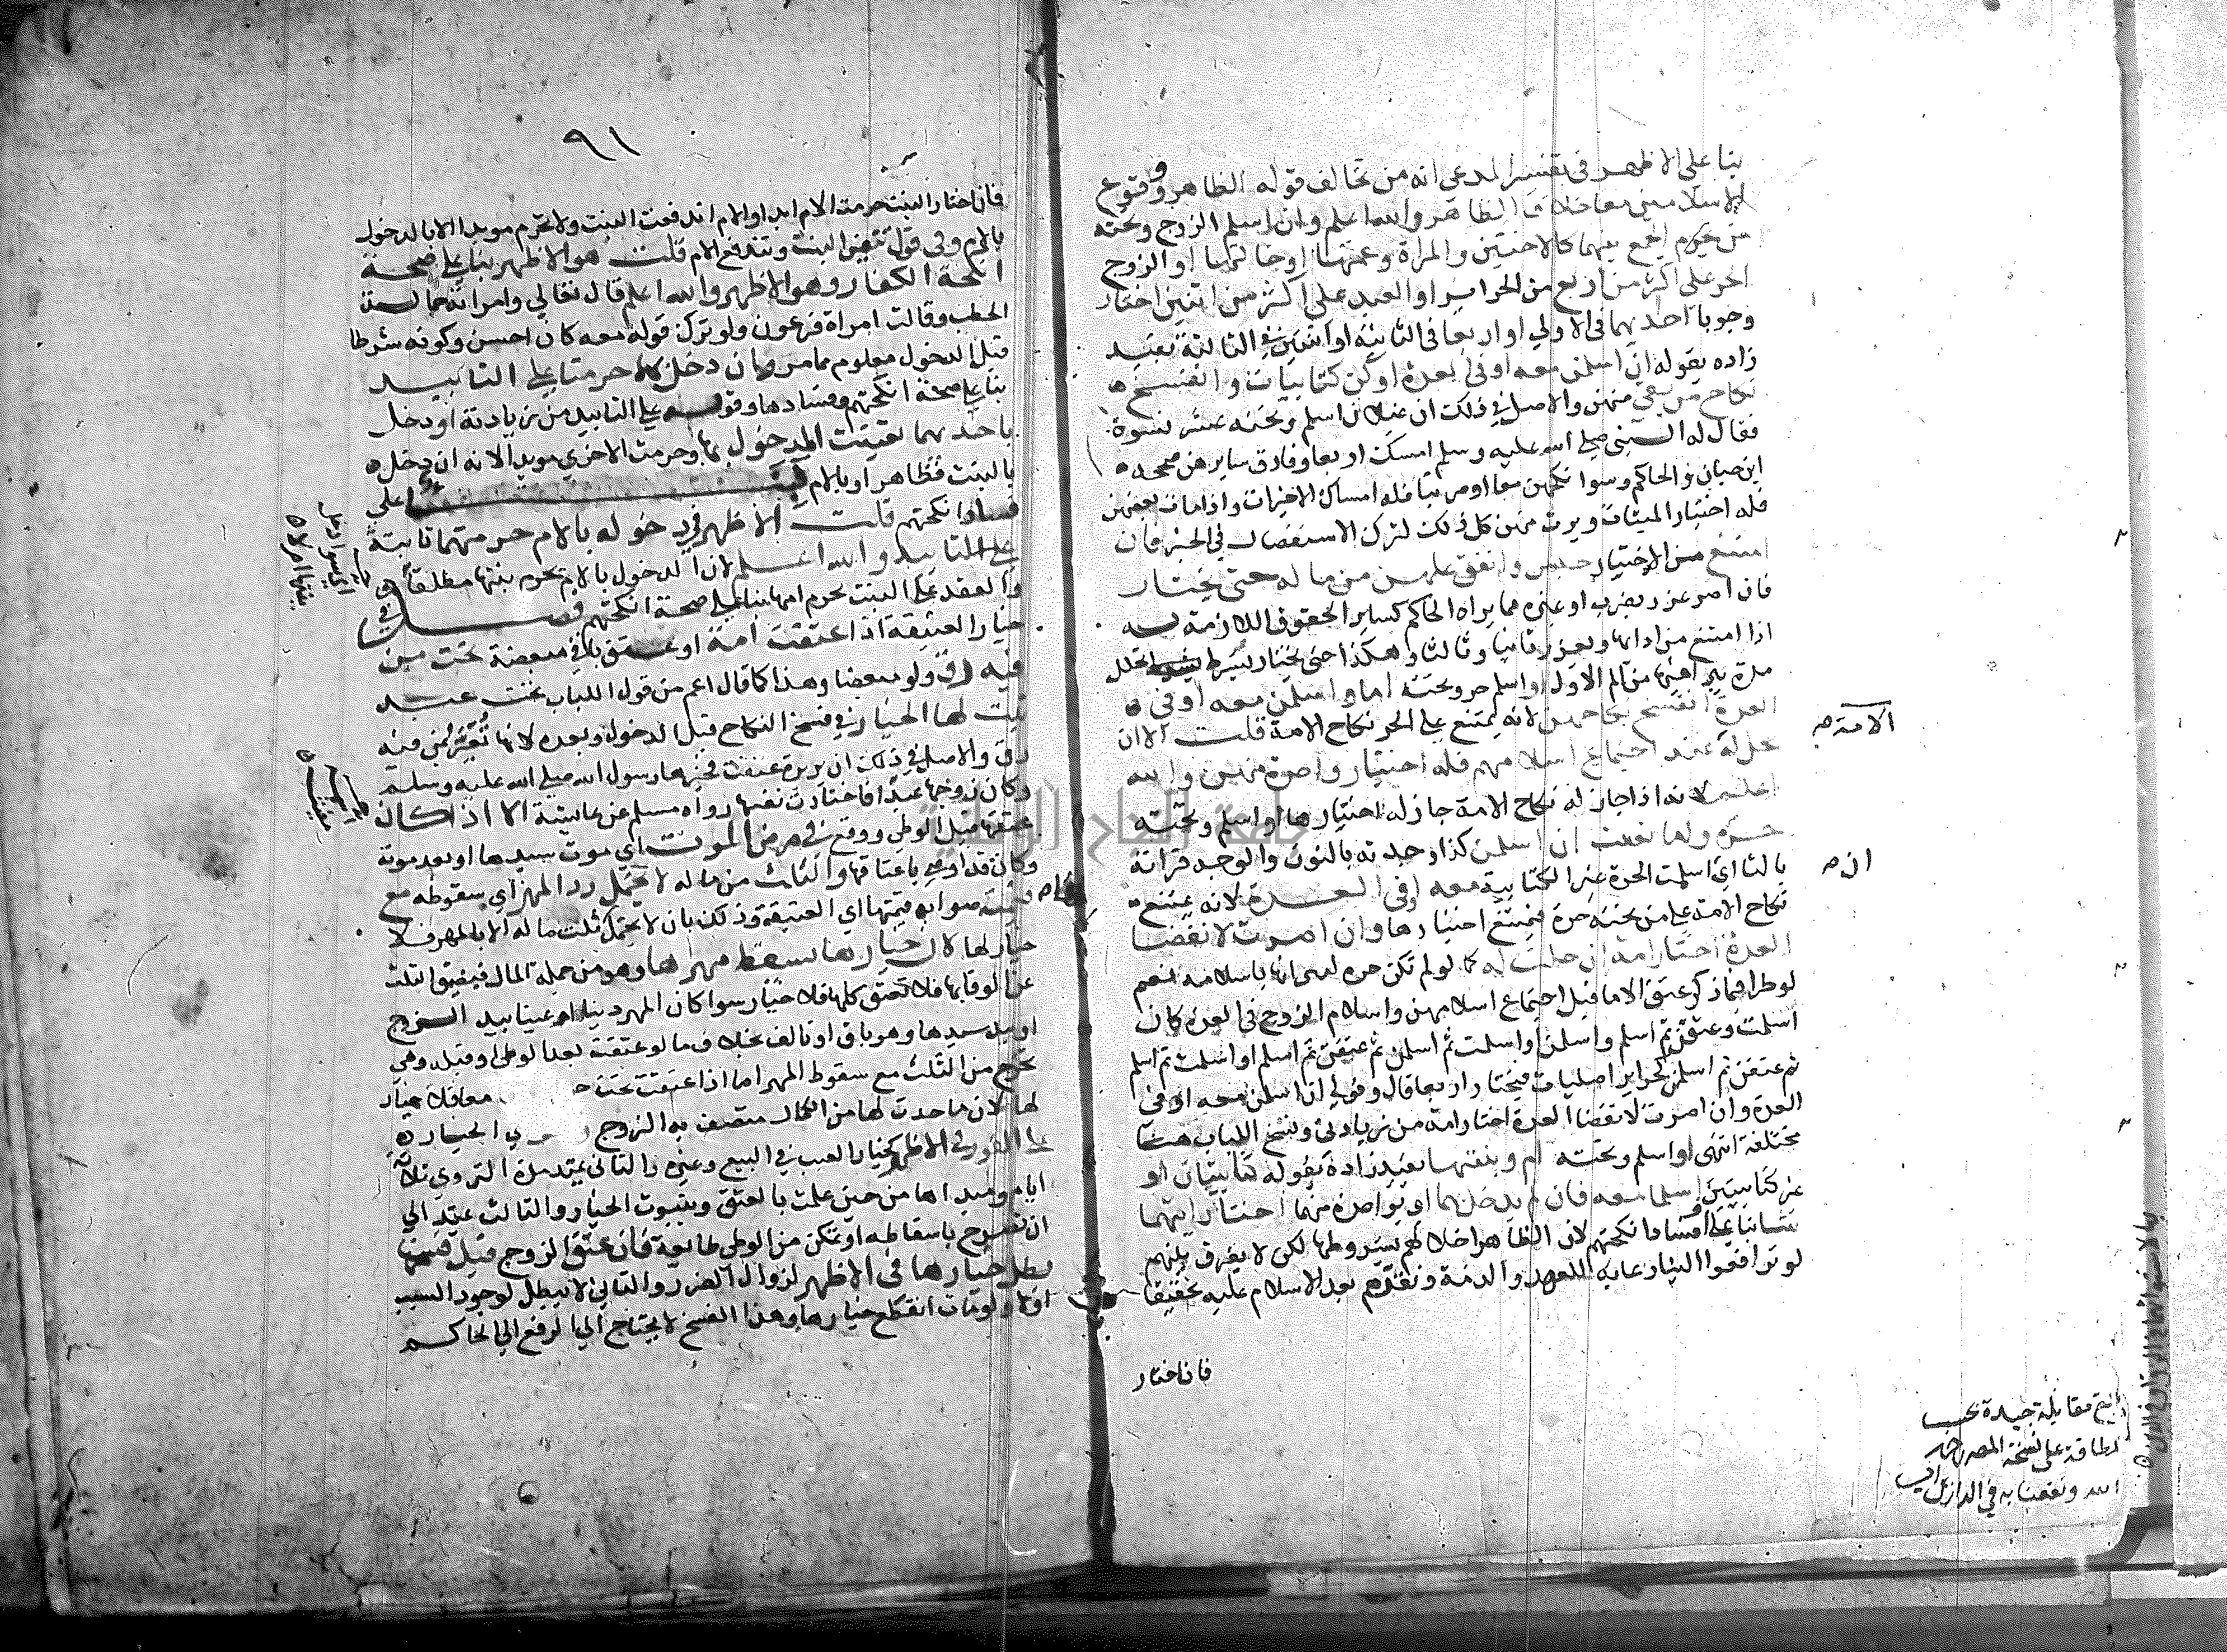 بنا على الاظهر في تفسير المدعي انه من تخالف قوله الظاهر ووقوع
الاسلامين معا خلاف الظاهر والله اعلم وان اسلم الزوج وتحته
من يحرم الجمع بينهما كالاختين والمراة وعمتها او خالتها او الزوج
الحر على اكثر من اربع من الحراير او العبد على اكثر من اثنتين اختار
وجوبا احديهما في الاولي او اربعا في الثانية او اثنتين في الثالثة بقيد
زاده بقوله ان اسلمن معه او في العدة او كن كتابيات وانفسخ
نكاح من بقي منهن والاصل في ذلك ان غيلان اسلم وتحته عشر نسوة
فقال له النبي صلي الله عليه وسلم امسك اربعا وفارق سايرهن صححه
ابن حبان والحاكم وسوا نكحهن معا او مرتبا فله امساك الاخيرات واذا مات بعضهن
فله اختيار الميتات ويرث منهن كل ذلك لترك الاستفصال في الخبر فان
امتنع من الاختيار حبس وانفق عليهن من ماله حتى يختار
فان اصر عزر بضرب او غيره مما يراه الحاكم كساير الحقوق اللازمة له
اذا امتنع من ادايها ويعزر ثانيا وثالثا وهكذا حتى يختار بشرط تخلل
مدة يبرا فيها من الم الاول او اسلم حر وتحته اما واسلمن معه او في
العدة انفسخ نكاحهن لانه يمتنع على الحر نكاح الامة قلت الا ان
الامة صح
حل له عند اجتماع اسلامهم فله اختيار واحدة منهن والله
اعلم لانه اذا جاز له نكاح الامة جاز له اختيارها او اسلم وتحته
حرة واما تعينت ان اسلمن كذا وجدته بالنون والوجه قراته
بالتا اي اسلمت الحرة غير الكتابية معه او في العدة لانه يمتنع
ان صح
نكاح الامة على من تحته حرة فيمتنع اختيارها وان اصرت لانقضا
العدة اختار امة ان حلت له كما لو لم تكن حرة باسلامه نعم
لو طرا فيما ذكر عتق الاما قبل اجتماع اسلامهن واسلام الزوج في العدة كان
اسلمت وعتقن ثم اسلم واسلمن او اسلمت ثم اسلمن ثم عتقن ثم اسلم او اسلمت ثم اسلم
ثم عتقن ثم اسلمن كحراير اصليات فيختار اربعا قال وقولي ان اسلمن معه او في
العدة وان اصرت لانقضا العدة اختار امة من زيادتي ونسخ اللباب هنا
مختلفة انتهى او اسلم وتحته ام وبنتها بقيد زاده بقوله كتابيتان او
غير كتابيتين اسلما معه فان لم يدخل بهما او بواحدة منهما اختار ايتهما
شا بنا على فساد انكحتهم لان الظاهر اخلالهم بشروطها لكن لا يفرق بينهم
لو ترافعوا الينا رعاية للعهد والذمة ونقرهم بعد الاسلام عليه تخفيفا
فان اختار
بلغ مقابلة جيدة بحسب
الطاقة على نسخة المص رحمه
الله ونفعنا به في الدارين امين
٩١
فان اختار البنت حرمت الام ابدا او الام اندفعت البنت ولا تحرم موبدا الا بالدخول
بالام وفي قول تتعين البنت وتندفع الام قلت هو الاظهر بنا على صحة
انكحة الكفار وهو الاظهر والله اعلم قال تعالي وامراته حمالة
الحطب وقالت امراة فرعون ولو ترك قوله معه كان احسن وكونه شرطا
قبل الدخول معلوم مما مر وان دخل بهما حرمتا علي التابيد
بنا على صحة انكحتهم وفسادها وقوله علي التابيد من زيادته او دخل
باحديهما تعينت المدخول بها وحرمت الاخري موبدا لانه ان دخل
بالبنت فظاهر او بالام على
فساد انكحتهم قلت الاظهر في دخوله بالام حرمتهما ثابتة
علي التابيد والله اعلم لان الدخول بالام يحرم بنتها مطلقا
والعقد على البنت يحرم امها بنا علي صحة انكحتهم فصل في
خيار العتيقة اذا اعتقت امة او عتق باقي مبعضة تحت من
فيه رق ولو مبعضا وهذا كما قال اعم من قول اللباب تحت عبد
ثبت لها الخيار في فسخ النكاح قبل الدخول وبعده لانها تعير بمن فيه
رق والاصل في ذلك ان بريرة عتقت فخيرها رسول الله صلي الله عليه وسلم
وكان زوجها عبدا فاختارت نفسها رواه مسلم عن عايشة الا اذا كان
عتقها قبل الوطي ووقع في مرض الموت اي موت سيدها او بعد موته
وكان قد اوصي باعتاقها والثلث من ماله لا يحتمل رد المهر اي سقوطه مع
صوابه قيمتها اي العتيقة وذلك بان لا يحتمل ثلث ماله الا بالمهر فلا
خيار لها لان خيارها يسقط مهرها وهو من جملة المال فيضيق الثلث
عن الوفا بها فلا تعتق كلها فلا خيار سوا كان المهر دينا او عينا بيد الزوج
او بيد سيدها وهو باق او تالف بخلاف ما لو عتقت بعد الوطي او قبله وهي
تخرج من الثلث مع سقوط المهر اما اذا عتقت تحت معا فلا خيار
لها لان ما حدث لها من الكمال متصف به الزوج الخيار
على الفور في الاظهر كخيار العيب في البيع وغيره والثاني يمتد مدة التروي ثلاثة
ايام ومبداها من حين علمت بالعتق وبثبوت الخيار والثالث يمتد الي
ان تصرح باسقاطه او تمكن من الوطي طايعة فان عتق الزوج قبل فسخها
بطل خيارها في الاظهر لزوال الضرر والثاني لا يبطل لوجود السبب
اولا ولو مات انقطع خيارها وهذا الفسخ لا يحتاج الي الرفع الي الحاكم